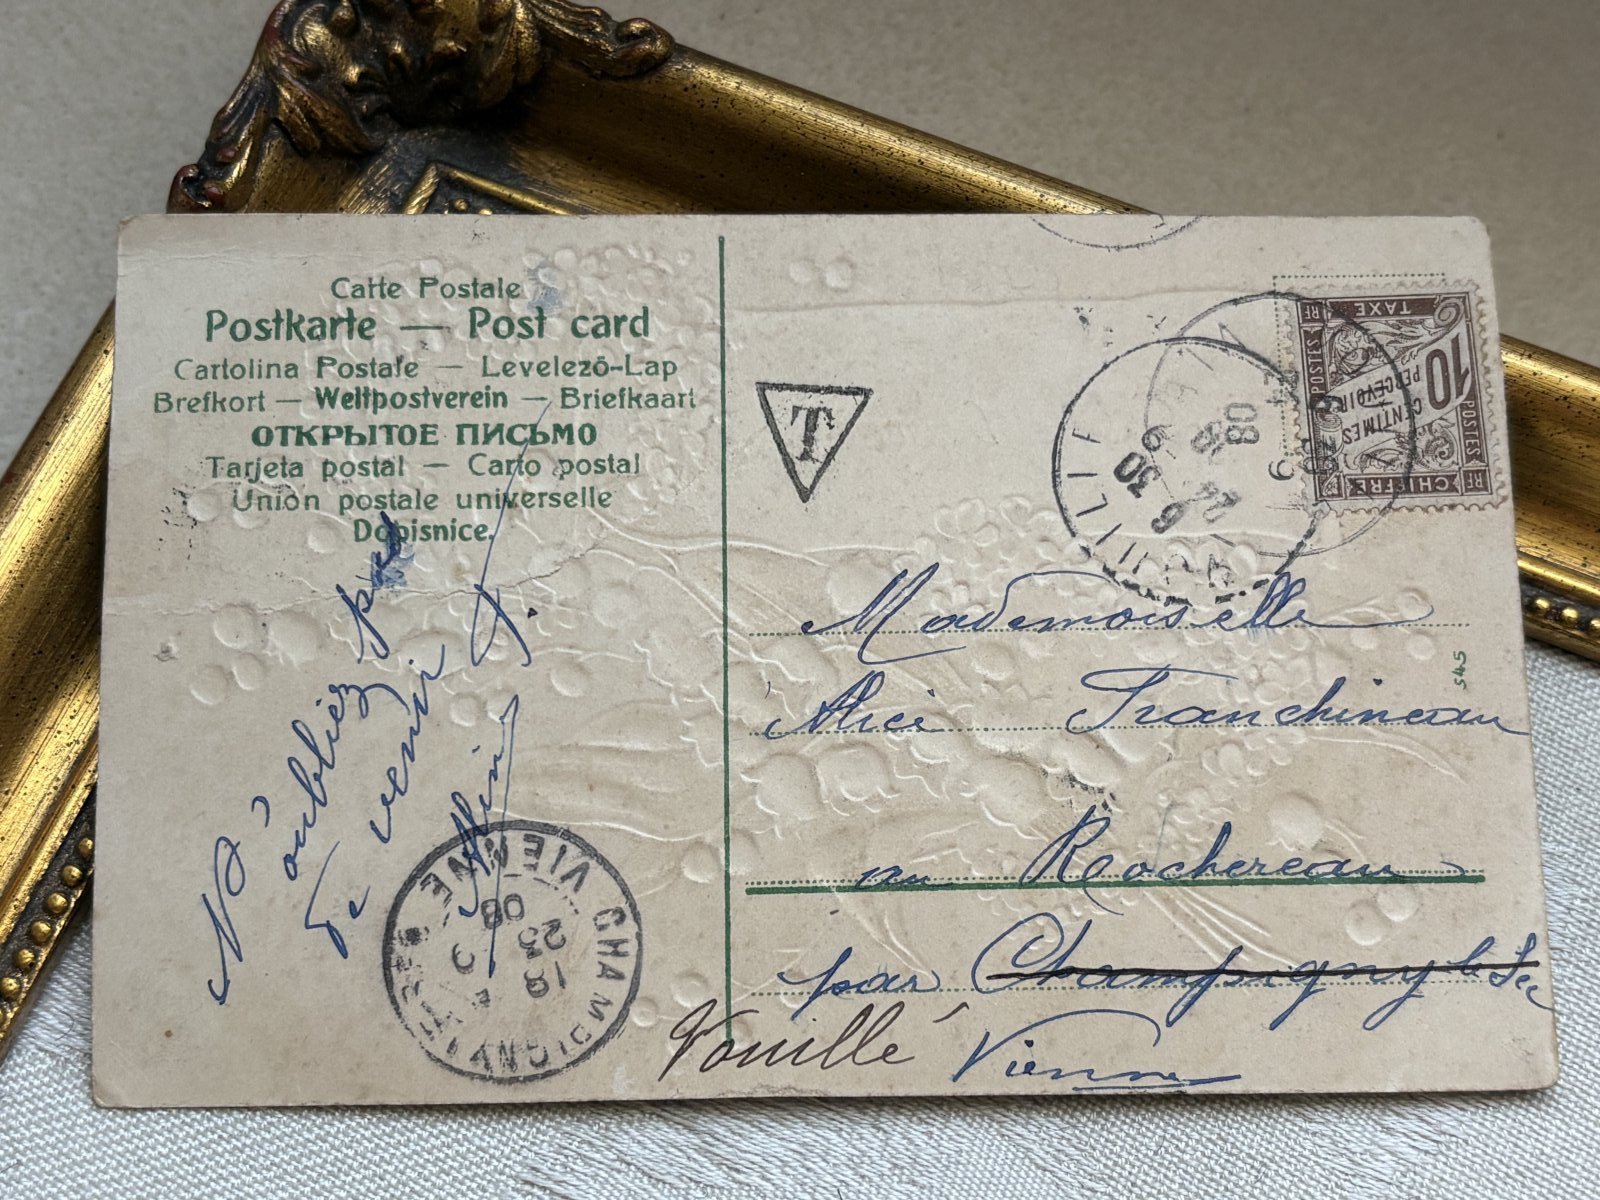 Carte Postale
Postkarte — Post card
Cartolina Postale — Levelező-Lap
Brefkort — Weltpostverein — Briefkaart
ОТКРЫТОЕ ПИСЬМО
Tarjeta postal — Carto postal
Union postale universelle
Dopisnice.
N'oubliez pas
de venir
Alin
T
10
CENTIMES
PERCEVOIR
CHIFFRE
TAXE
POSTES
POSTES
RF
RF
RF
VOUILLE
6 30
24 9
08
Mademoiselle
Alice Franchineau
au Rochereau
par Champigny le Sec
Vouillé Vienne
545
CHAMPIGNY
VIENNE
18
23 9
08